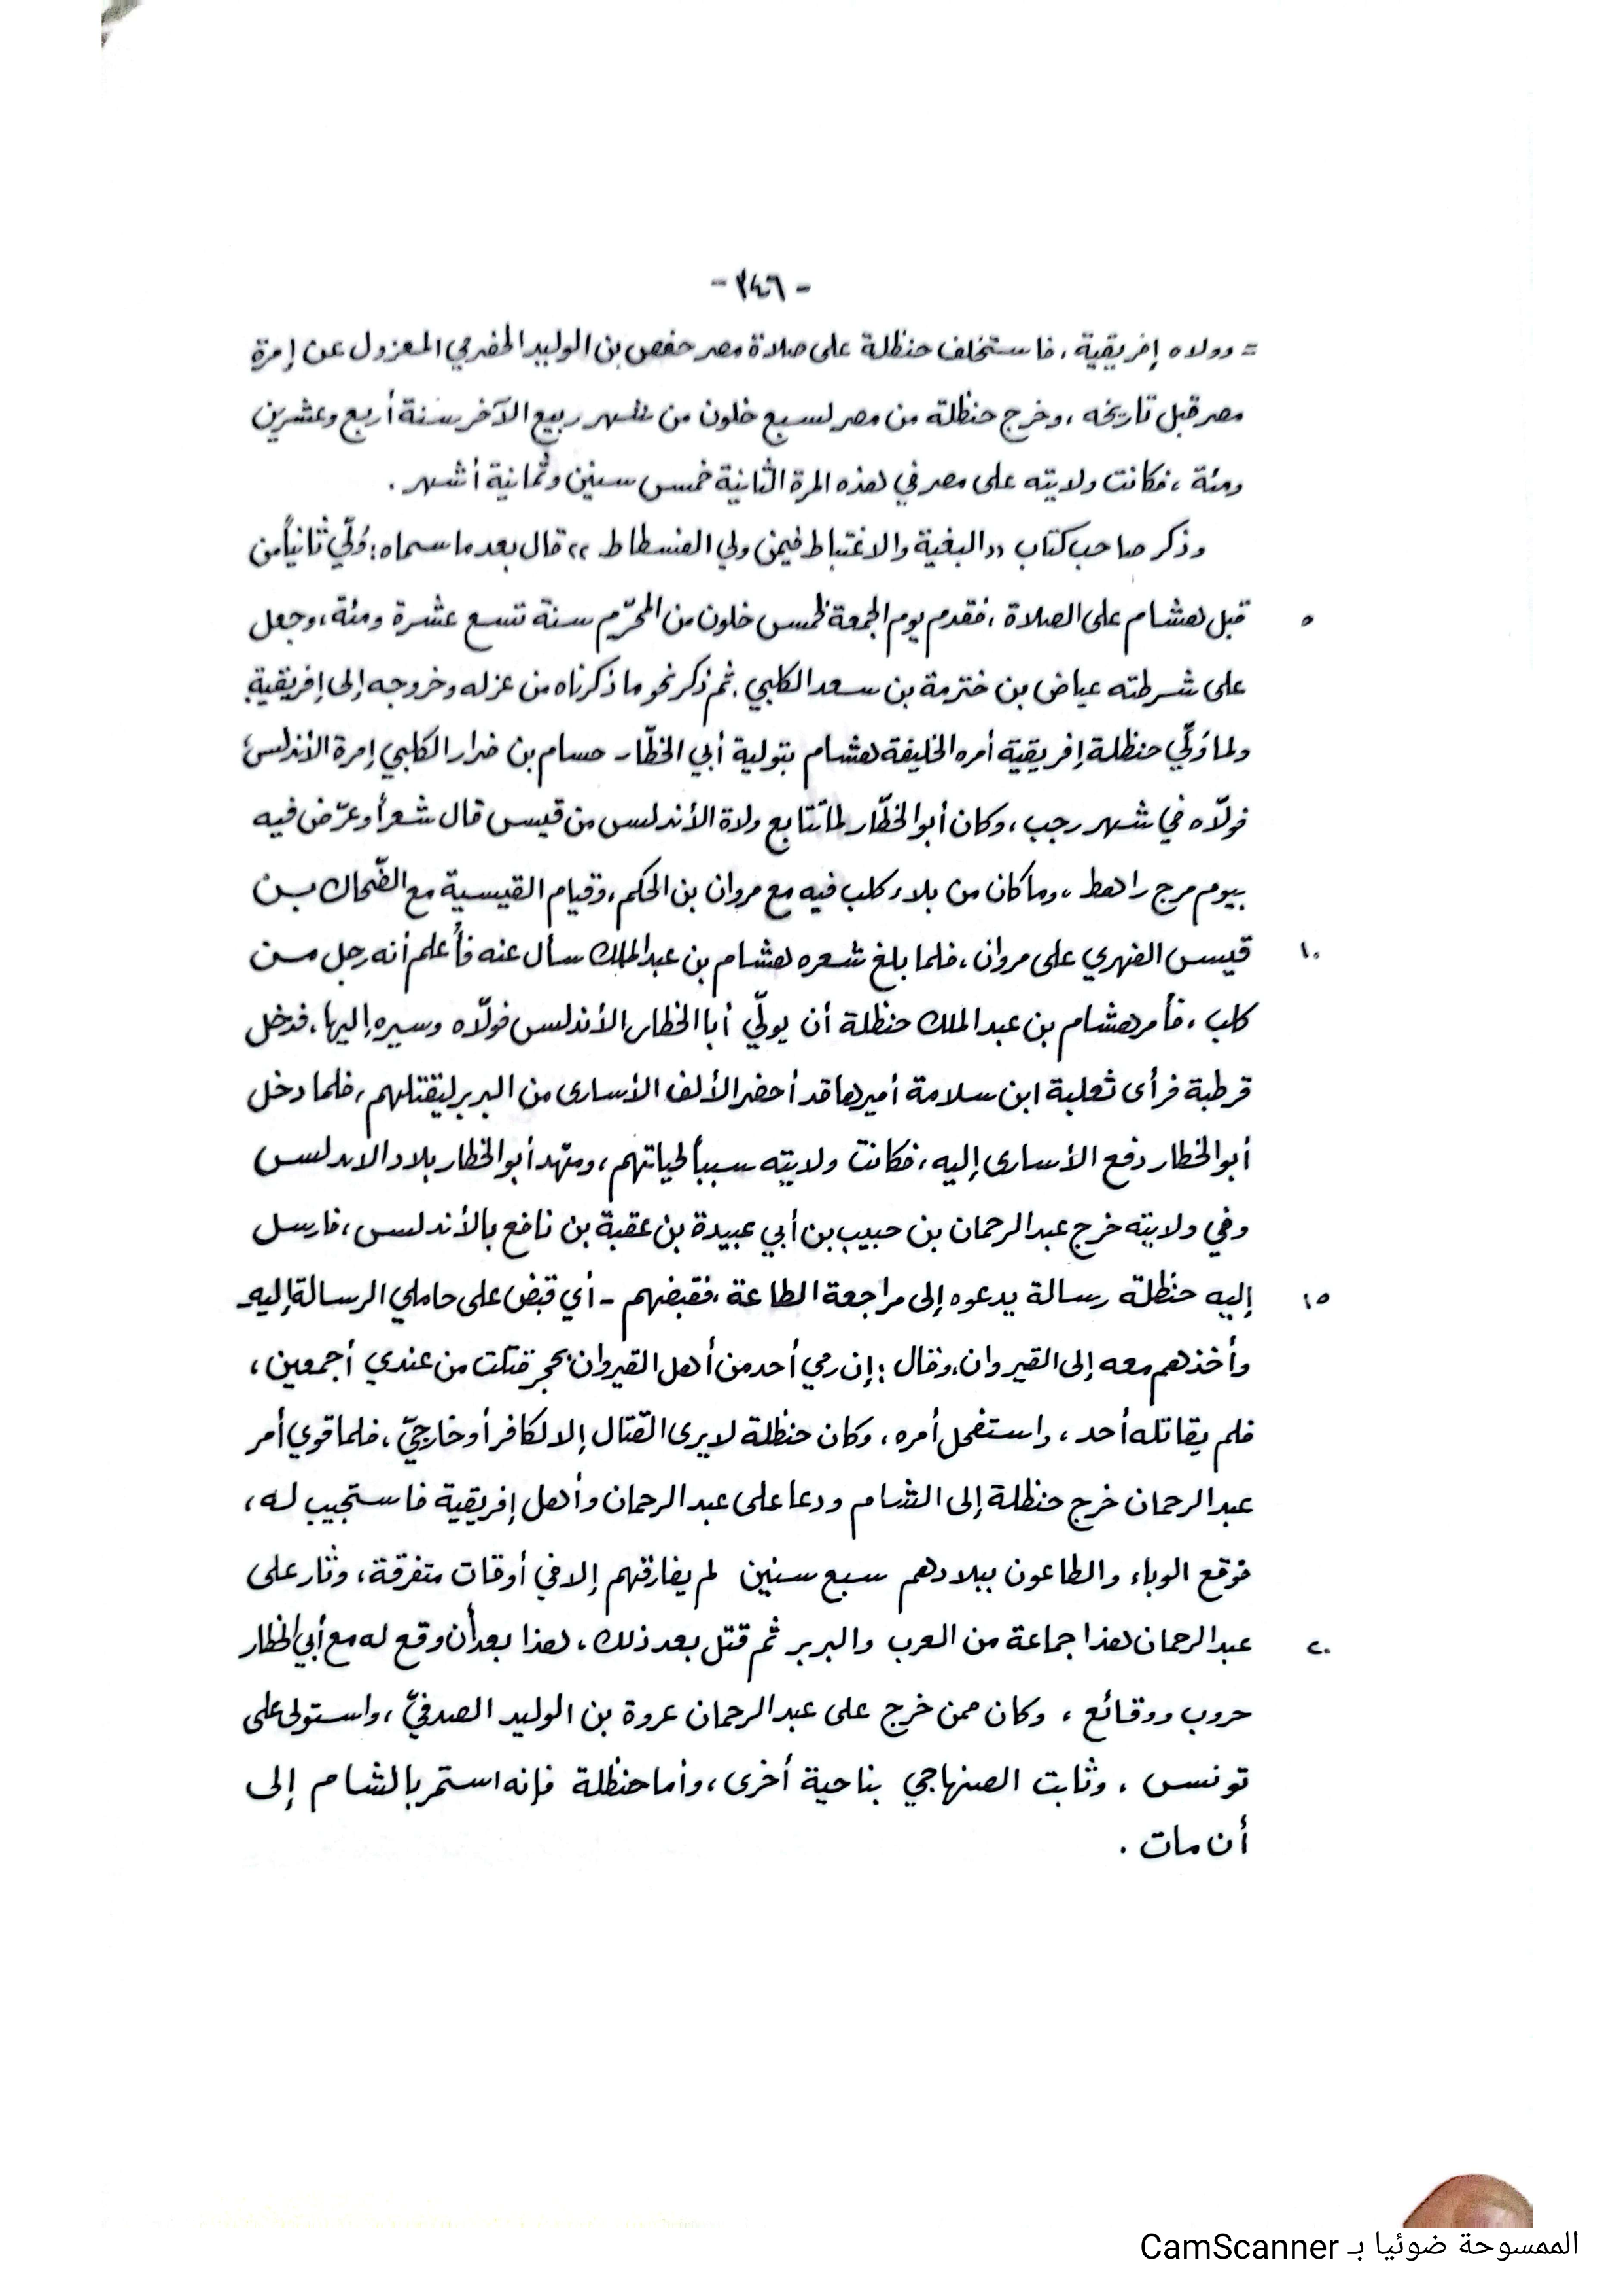 - ٣٤٦ -
= وولاه إفريقية ، فاستخلف حنظلة على صلاة مصر حفص بن الوليد الحضرمي المعزول عن إمرة
مصر قبل تاريخه ، وخرج حنظلة من مصر لسبع خلون من شهر ربيع الآخر سنة أربع وعشرين
ومئة ، فكانت ولايته على مصر في هذه المرة الثانية خمس سنين وثمانية أشهر .
وذكر صاحب كتاب « البغية والاغتباط فيمن ولي الفسطاط » قال بعد ما سماه : وُلّي ثانياً من
٥ قبل هشام على الصلاة ، فقدم يوم الجمعة لخمس خلون من المحرّم سنة تسع عشرة ومئة ، وجعل
على شرطته عياض بن خترمة بن سعد الكلبي . ثم ذكر نحو ما ذكرناه من عزله وخروجه إلى إفريقية
ولما وُلّي حنظلة إفريقية أمره الخليفة هشام بتولية أبي الخطّار حسام بن ضرار الكلبي إمرة الأندلس ،
فولّاه في شهر رجب ، وكان أبو الخطّار لمّا تتابع ولاة الأندلس من قيس قال شعراً وعرّض فيه
بيوم مرج راهط ، وما كان من بلاء كلب فيه مع مروان بن الحكم ، وقيام القيسية مع الضّحاك بن
١٠ قيس الفهري على مروان ، فلما بلغ شعره هشام بن عبد الملك سأل عنه فأُعلم أنه رجل من
كلب ، فأمر هشام بن عبد الملك حنظلة أن يولّي أبا الخطار الأندلس فولّاه وسيره إليها ، فدخل
قرطبة فرأى ثعلبة ابن سلامة أميرها قد أحضر الألف الأسارى من البربر ليقتلهم ، فلما دخل
أبو الخطار دفع الأسارى إليه ، فكانت ولايته سبباً لحياتهم ، ومهّد أبو الخطار بلاد الاندلس
وفي ولايته خرج عبد الرحمان بن حبيب بن أبي عبيدة بن عقبة بن نافع بالأندلس ، فارسل
١٥ إليه حنظلة رسالة يدعوه إلى مراجعة الطاعة ، فقبضهم - أي قبض على حاملي الرسالة إليه -
وأخذهم معه إلى القيروان ، وقال : إن رمي أحد من أهل القيروان بحجر قتلت من عندي أجمعين ،
فلم يقاتله أحد ، واستفحل أمره ، وكان حنظلة لا يرى القتال إلا لكافر أو خارجيّ ، فلما قوي أمر
عبد الرحمان خرج حنظلة إلى الشام ودعا على عبد الرحمان وأهل إفريقية فاستجيب له ،
فوقع الوباء والطاعون ببلادهم سبع سنين لم يفارقهم إلا في أوقات متفرقة ، وثار على
٢٠ عبد الرحمان هذا جماعة من العرب والبربر ثم قتل بعد ذلك ، هذا بعد أن وقع له مع أبي الخطار
حروب ووقائع ، وكان ممن خرج على عبد الرحمان عروة بن الوليد الصدفيّ ، واستولى على
تونس ، وثابت الصنهاجي بناحية أخرى ، وأما حنظلة فإنه استمر بالشام إلى
أن مات .
الممسوحة ضوئيا بـ CamScanner